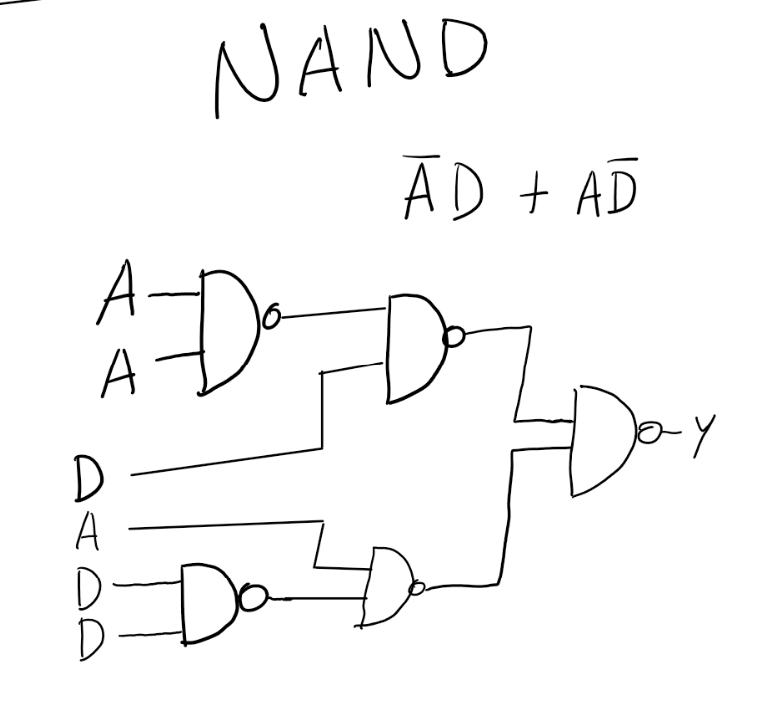 NAND
A̅D + AD̅
A
A
D
A
D
D
Y